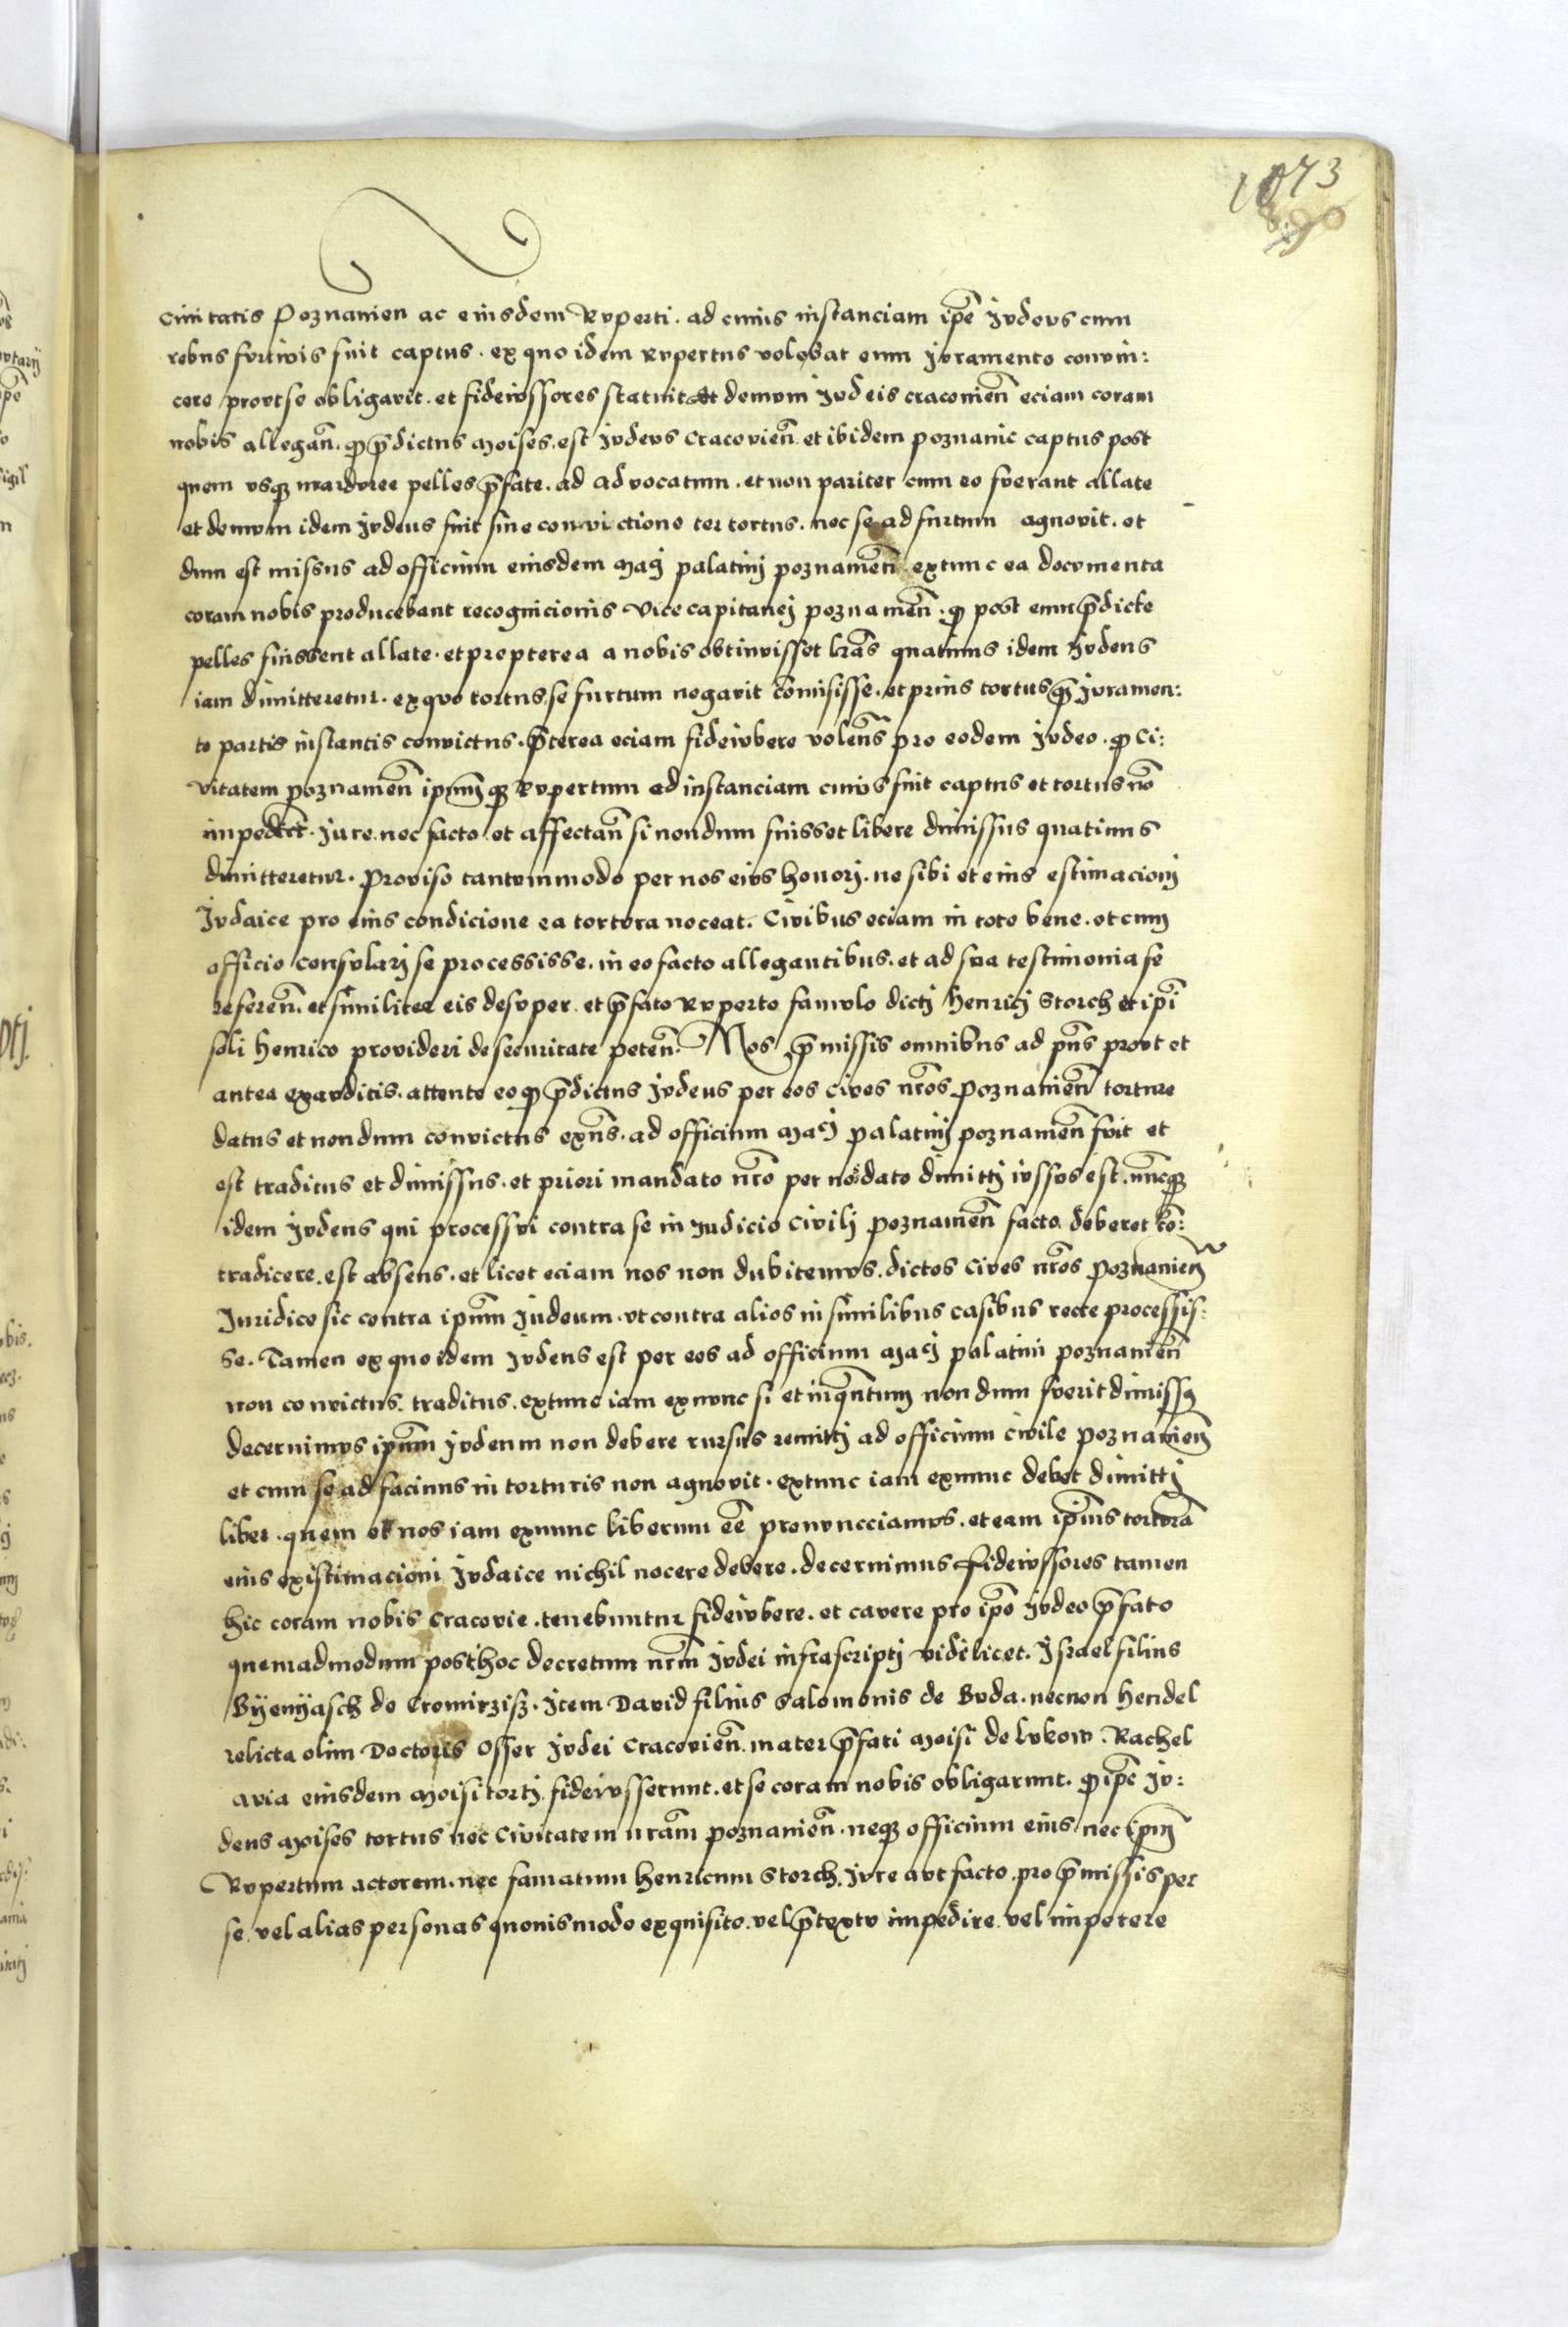 1073
890
Civitatis Poznanien ac eiusdem Rvperti . ad cuius instanciam ip̄e Jvdevs cum
rebus fvrtivis fuit captus . ex quo idem Rvpertus volebat eum jvramento convin:
cere provt se obligavit . et fideivssores statuit Et demvm Jvdeis cracovień eciam coram
nobis allegań . ꝙ p̄dictus Moises . est Jvdevs Cracovień et ibidem poznanie captus post
quem vsqꝫ mardvree pelles p̄fate . ad advocatum . et non pariter cum eo fverant allate
et demvm idem Jvdeus fuit sine convictione ter tortus . nec se ad furtum agnovit . et
dum est missus ad officium eiusdem Maci palatini poznanień extunc ea docvmenta
coram nobis producebant recognicionis Vicecapitanei poznanień . ꝙ post eum p̄dicte
pelles fuissent allate . et propterea a nobis obtinvisset lr̄as quatinus idem Jvdeus
iam dimitteretur . ex quo tortus se furtum negavit com̄isisse . et prius tortus q̄ꝫ Jvramen:
to partis instantis convictus . p̄terea eciam fideivbere volens̄ pro eodem Jvdeo . ꝙ Ci:
vitatem poznanień ipsumqꝫ Rvpertum ad instanciam cuivs fuit captus et tortus nō
impediret . Jure nec facto . et affectań si nondum fuisset libere dimissus quatinus
dimitteretur . Proviso tantvmmodo per nos eivs honorj . ne sibi et eius estimacionj
Jvdaice pro eius condicione ea tortvra noceat . Civibus eciam in toto bene . et cum
officio consvlarj se processisse . in eo facto allegantibus . et ad sva testimonia se
referen̄ . et similiter eis desvper . et p̄fato Rvperto famvlo dictj Henricj Storch et ip̄i
soli Henrico provideri de securitate peteń . Nos p̄missis omnibus ad pn̄s provt et
antea exavditis . attento eo ꝙ p̄dictus Jvdeus per eos cives nr̄os Poznanień torture
datus et nondum convictus exn̄s . ad officium Maci palatinj poznanień fvit et
est traditus et dimissus . et priori mandato nr̄o per nos dato dimittj ivssvs est . nuncqꝫ
idem Jvdeus qui processvi contra se in Judicio Civilj poznanień facto deberet co̅:
tradicere . est absens . et licet eciam nos non dubitemvs . dictos cives nr̄os Poznanień
Juridice sic contra ipsum̄ Judeum . vt contra alios in similibus casibus recte processis:
se . Tamen ex quo idem Jvdeus est per eos ad officium Maci palatini poznanień
non convictus . traditus . extunc iam exnvnc si et inqn̄tum nondum fverit dimissꝰ
decernimvs ipsum̄ Jvdeum non debere rursus remittj ad officium civile poznanień
et cum se ad facinus in torturis non agnovit . extunc iam exnunc debet dimittj
liber . quem et nos iam exnunc liberum ee̅ pronvncciamvs . et eam ip̄ius tortvrā
eius existimacioni Jvdaice nichil nocere debere . decernimus Fideivssores tamen
hic coram nobis Cracovie . tenebuntur fideivbere . et cavere pro ip̄o Jvdeo p̄fato
quemadmodum post hoc decretum nr̄m Jvdei infrascriptj videlicet . Jsrael filius
Byenyasch de Cromirzisz . Jtem David filius Salomonis de Bvda . necnon Hendel
relicta olim Doctoris Osser Jvdei Cracovień . mater p̄fati Moisi de Lvkow . Rachel
avia eiusdem Moisi tortj . fideivsserunt . et se coram nobis obligarunt . ꝙ ip̄e Jv:
deus Moises tortus nec Civitatem nr̄am poznanień . neqꝫ officium eius nec ip̄m
Rvpertum actorem . nec famatum Henricum Storch . Jvre avt facto . pro p̄missis per
se . vel alias personas quovismodo exquisito . vel p̄textv impedire . vel impetere